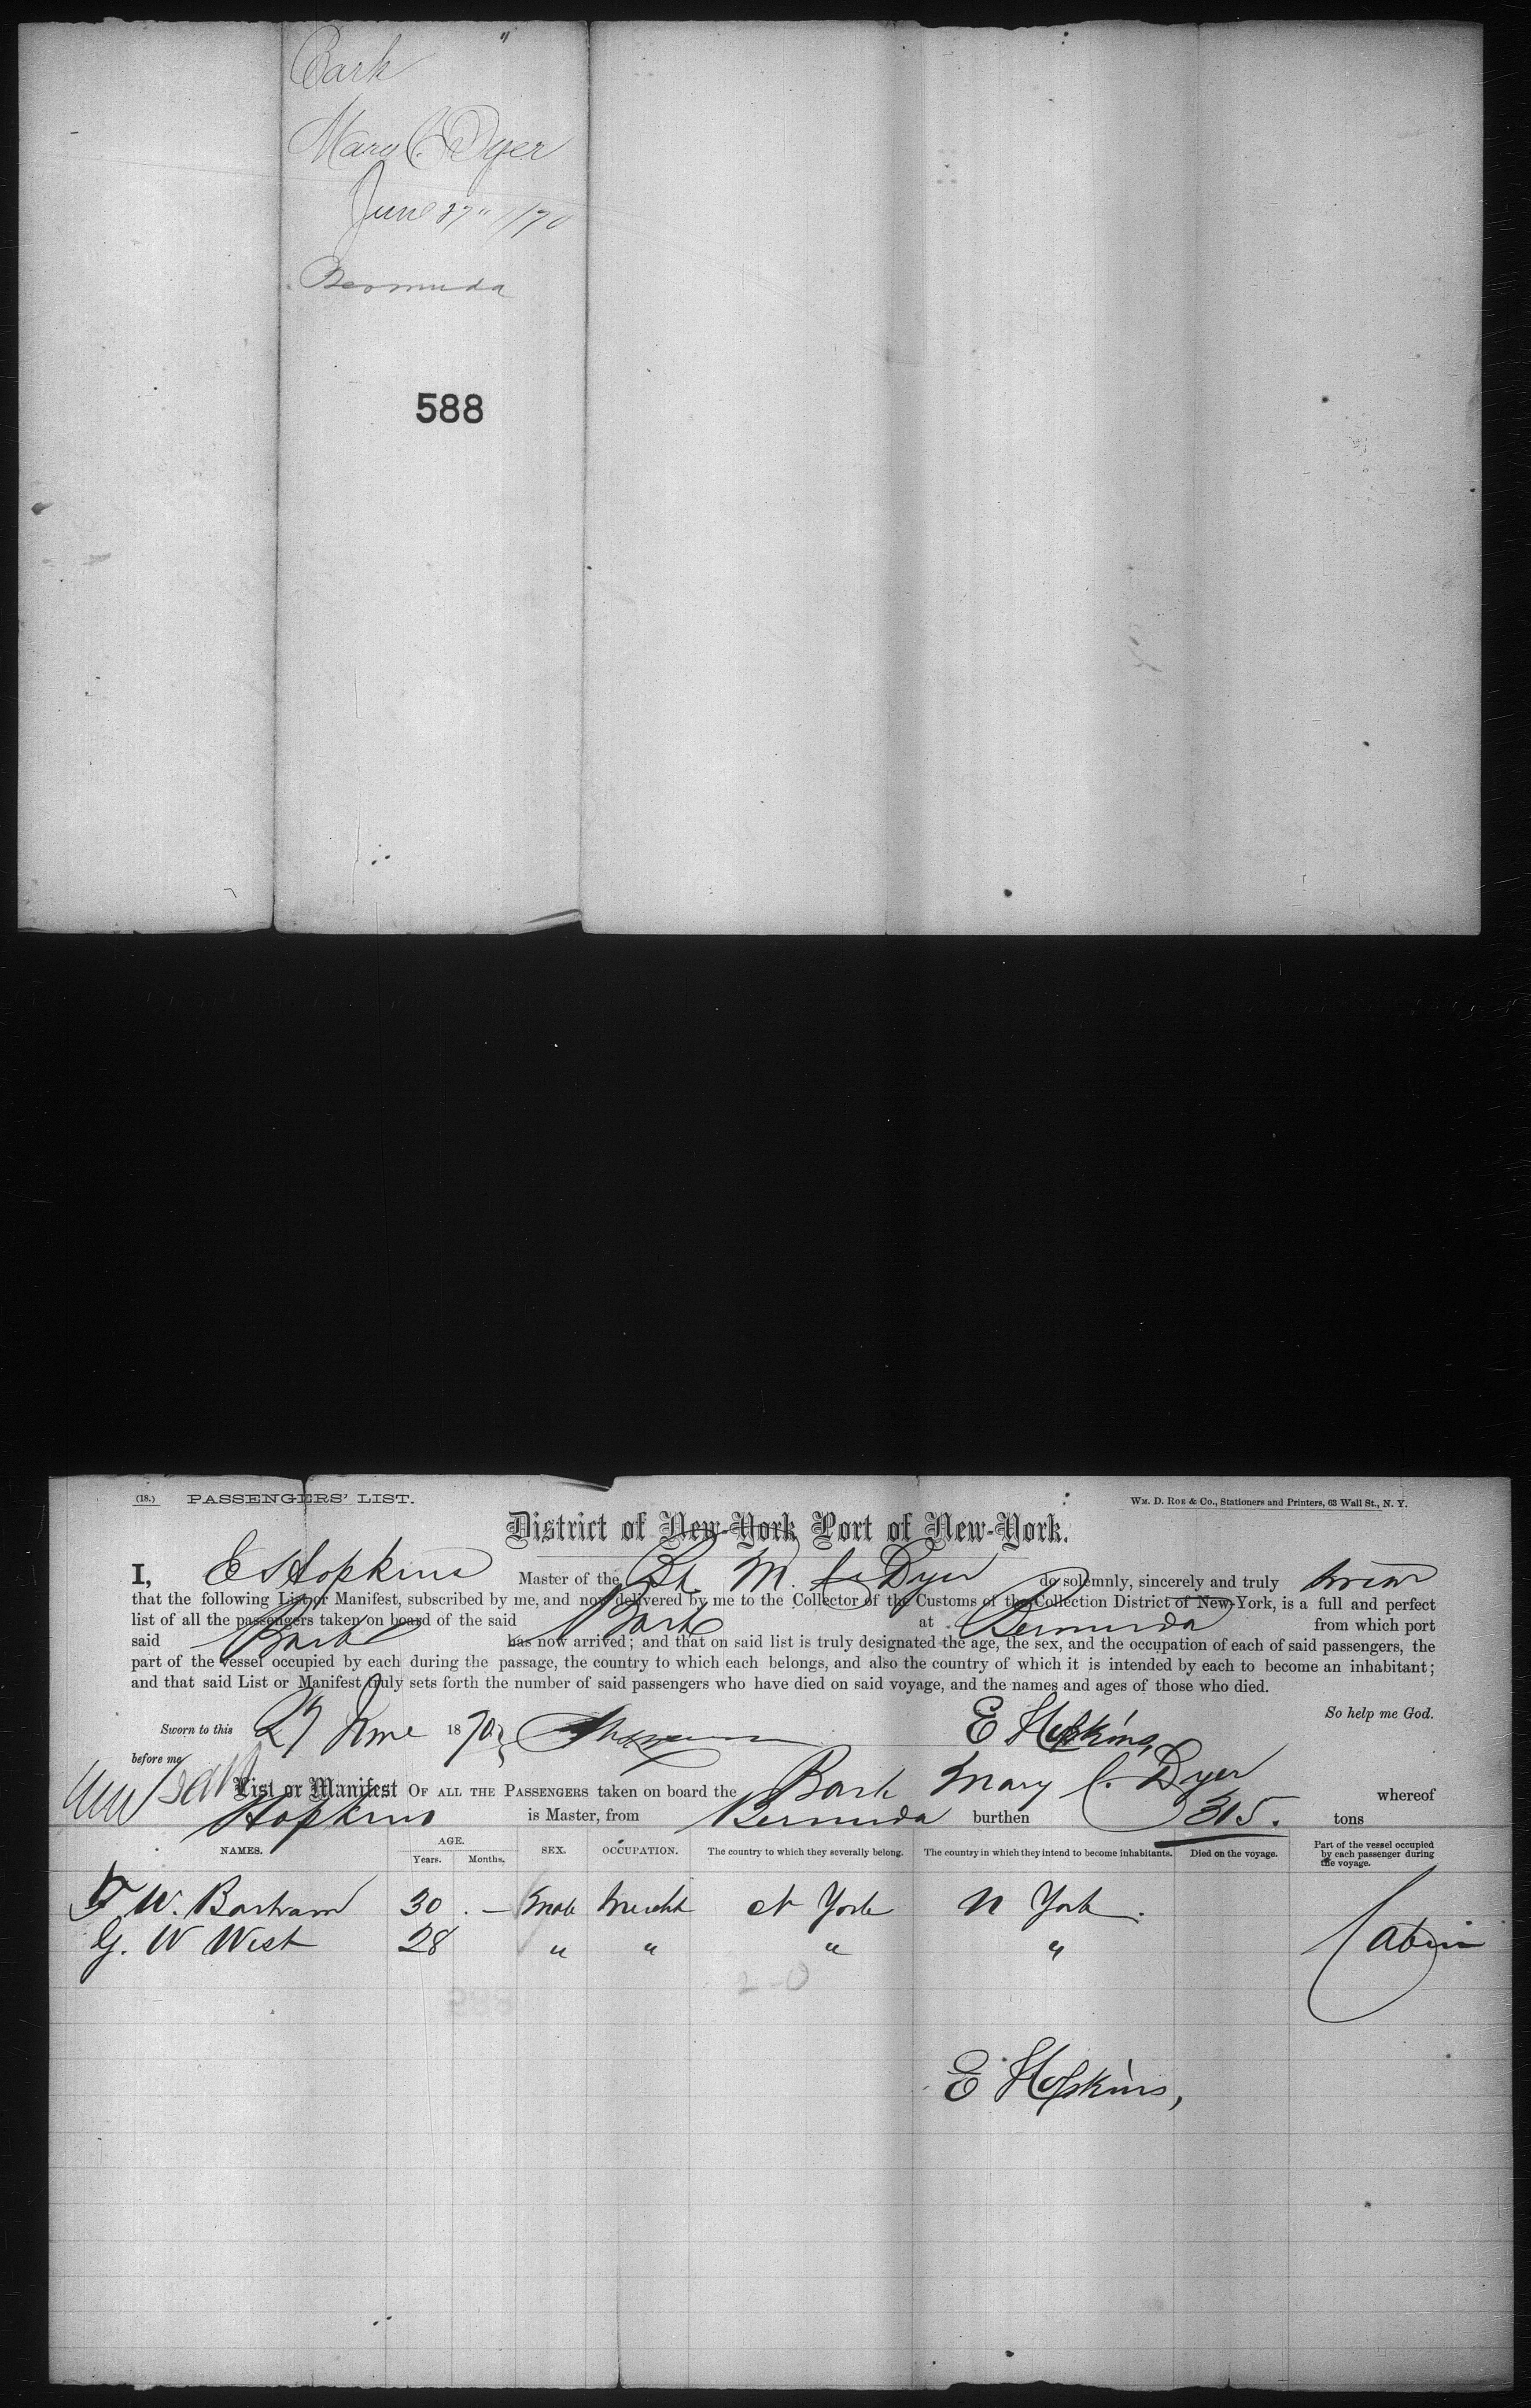 Bark
Mary C. Dyer
June 27" 1870
Bermuda
588
(18.) PASSENGERS' LIST.
WM. D. ROE & CO., Stationers and Printers, 63 Wall St., N. Y.
District of New-York Port of New-York.
I, E Hopkins Master of the Bk M. C. Dyer do solemnly, sincerely and truly swear
that the following List or Manifest, subscribed by me, and now delivered by me to the Collector of the Customs of the Collection District of New-York, is a full and perfect
list of all the passengers taken on board of the said Bark at Bermuda from which port
said Bark has now arrived; and that on said list is truly designated the age, the sex, and the occupation of each of said passengers, the
part of the vessel occupied by each during the passage, the country to which each belongs, and also the country of which it is intended by each to become an inhabitant;
and that said List or Manifest truly sets forth the number of said passengers who have died on said voyage, and the names and ages of those who died.
So help me God.
Sworn to this 27 June 1870 E Hopkins,
before me
List or Manifest OF ALL THE PASSENGERS taken on board the Bark Mary C. Dyer whereof
Hopkins is Master, from Bermuda burthen 315. tons
NAMES. AGE. Years. Months. SEX. OCCUPATION. The country to which they severally belong. The country in which they intend to become inhabitants. Died on the voyage. Part of the vessel occupied by each passenger during the voyage.
F W. Bartram 30 . — Male Mercht N York N York.
G. W West 28 " " " " Cabin
2-0
E Hopkins,